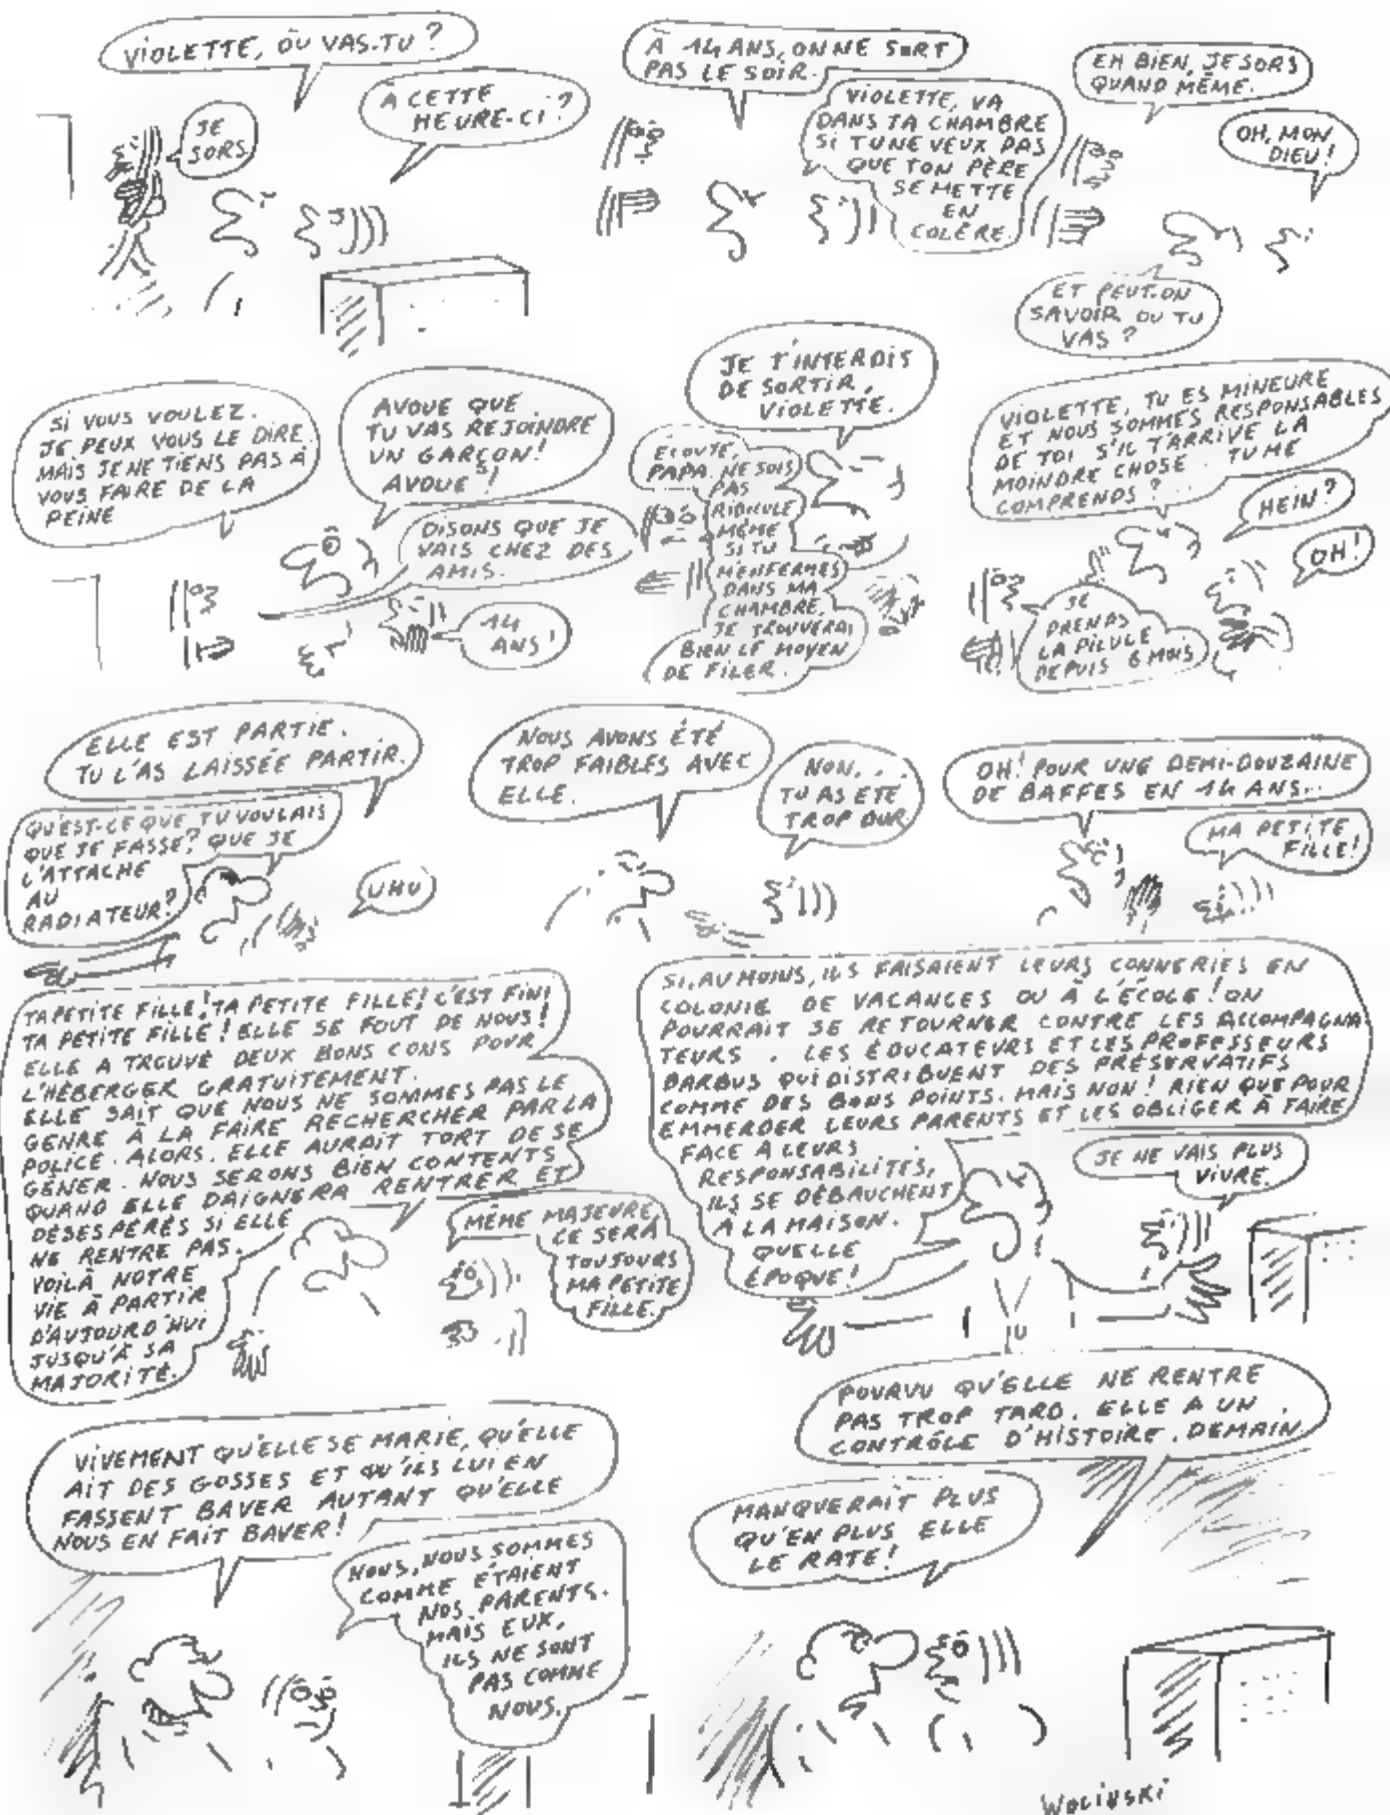 VIOLETTE, OÙ VAS-TU ?
JE
SORS
À CETTE
HEURE-CI ?
À 14 ANS, ON NE SORT
PAS LE SOIR.
VIOLETTE, VA
DANS TA CHAMBRE
SI TU NE VEUX PAS
QUE TON PÈRE
SE METTE
EN
COLÈRE
EH BIEN, JE SORS
QUAND MÊME.
OH, MON
DIEU !
ET PEUT-ON
SAVOIR OU TU
VAS ?
SI VOUS VOULEZ.
JE PEUX VOUS LE DIRE
MAIS JE NE TIENS PAS À
VOUS FAIRE DE LA
PEINE
AVOUE QUE
TU VAS REJOINDRE
UN GARÇON !
AVOUE !
DISONS QUE JE
VAIS CHEZ DES
AMIS.
14
ANS !
JE T'INTERDIS
DE SORTIR,
VIOLETTE.
ÉCOUTE,
PAPA, NE SOIS
PAS
RIDICULE
MÊME
SI TU
M'ENFERMES
DANS MA
CHAMBRE,
JE TROUVERAI
BIEN LE MOYEN
DE FILER.
VIOLETTE, TU ES MINEURE
ET NOUS SOMMES RESPONSABLES
DE TOI S'IL T'ARRIVE LA
MOINDRE CHOSE. TU ME
COMPRENDS ?
HEIN ?
OH !
JE
PRENDS
LA PILULE
DEPUIS 6 MOIS
ELLE EST PARTIE.
TU L'AS LAISSÉE PARTIR.
QU'EST-CE QUE TU VOULAIS
QUE JE FASSE ? QUE JE
L'ATTACHE
AU
RADIATEUR ?
UHU
NOUS AVONS ÉTÉ
TROP FAIBLES AVEC
ELLE.
NON...
TU AS ÉTÉ
TROP DUR
OH ! POUR UNE DEMI-DOUZAINE
DE BAFFES EN 14 ANS...
MA PETITE
FILLE !
TA PETITE FILLE ! TA PETITE FILLE ! C'EST FINI
TA PETITE FILLE ! ELLE SE FOUT DE NOUS !
ELLE A TROUVÉ DEUX BONS CONS POUR
L'HÉBERGER GRATUITEMENT.
ELLE SAIT QUE NOUS NE SOMMES PAS LE
GENRE À LA FAIRE RECHERCHER PAR LA
POLICE. ALORS. ELLE AURAIT TORT DE SE
GÊNER. NOUS SERONS BIEN CONTENTS
QUAND ELLE DAIGNERA RENTRER ET
DÉSESPÉRÉS SI ELLE
NE RENTRE PAS.
VOILÀ NOTRE
VIE À PARTIR
D'AUJOURD'HUI
JUSQU'À SA
MAJORITÉ.
MÊME MAJEURE,
CE SERA
TOUJOURS
MA PETITE
FILLE.
SI, AU MOINS, ILS FAISAIENT LEURS CONNERIES EN
COLONIE DE VACANCES OU À L'ÉCOLE ! ON
POURRAIT SE RETOURNER CONTRE LES ACCOMPAGNA-
TEURS. LES ÉDUCATEURS ET LES PROFESSEURS
BARBUS QUI DISTRIBUENT DES PRÉSERVATIFS
COMME DES BONS POINTS. MAIS NON ! RIEN QUE POUR
EMMERDER LEURS PARENTS ET LES OBLIGER À FAIRE
FACE A LEURS
RESPONSABILITÉS,
ILS SE DÉBAUCHENT
A LA MAISON.
QUELLE
ÉPOQUE !
JE NE VAIS PLUS
VIVRE.
VIVEMENT QU'ELLE SE MARIE, QU'ELLE
AIT DES GOSSES ET QU'ILS LUI EN
FASSENT BAVER AUTANT QU'ELLE
NOUS EN FAIT BAVER !
NOUS, NOUS SOMMES
COMME ÉTAIENT
NOS PARENTS.
MAIS EUX,
ILS NE SONT
PAS COMME
NOUS.
POURVU QU'ELLE NE RENTRE
PAS TROP TARD. ELLE A UN
CONTRÔLE D'HISTOIRE. DEMAIN
MANQUERAIT PLUS
QU'EN PLUS ELLE
LE RATE !
WOLINSKI